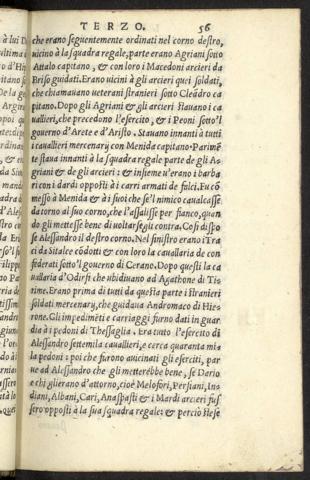 TERZO. 56
che erano seguentemente ordinati nel corno destro,
uicino à la squadra regale, parte erano Agriani sotto
Attalo capitano, & con loro i Macedoni arcieri da
Briso guidati. Erano uicini à gli arcieri quei soldati,
che chiamauano ueterani stranieri sotto Cleãdro ca
pitano. Dopo gli Agriani & gli arcieri stauano i ca
uallieri, che precedono l'esercito, & i Peoni sotto'l
gouerno d'Arete & d'Aristo. Stauano innanti à tutti
i cauallieri mercenary con Menida capitano. Parimẽ
te staua innanti à la squadra regale parte de gli A-
griani & de gli arcieri: & insieme u'erano i barba
ri con i dardi opposti à i carri armati de falci. Fu cõ
messo à Menida & à i suoi che se'l nimico caualcasse
da torno al suo corno, che l'assalisse per fianco, quan
do gli mettesse bene di uoltarsegli contra. Cosi dispo
se Alessandro il destro corno. Nel sinistro erano i Tra
ci da Sitalce cõdotti & con loro la cauallaria de con
federati sotto'l gouerno di Cerano. Dopo questi la ca
uallaria d'Odirsi che ubidiuano ad Agathone di Tis
time. Erano prima di tutti da questa parte i stranieri
soldati mercenary, che guidaua Andromaco di Hie-
rone. Gli impedimẽti e carriaggi furno dati in guar
dia à i pedoni di Thessaglia. Era tutto l'esercito di
Alessandro settemila cauallieri, e cerca quaranta mi
la pedoni: poi che furono auicinati gli eserciti, par
ue ad Alessandro che gli metterebbe bene, se Dario
e chi gli erano d'attorno, cioè Melofori, Persiani, In
diani, Albani, Cari, Anaspasti & i Mardi arcieri fus
sero opposti à la sua squadra regale: & perciò stese